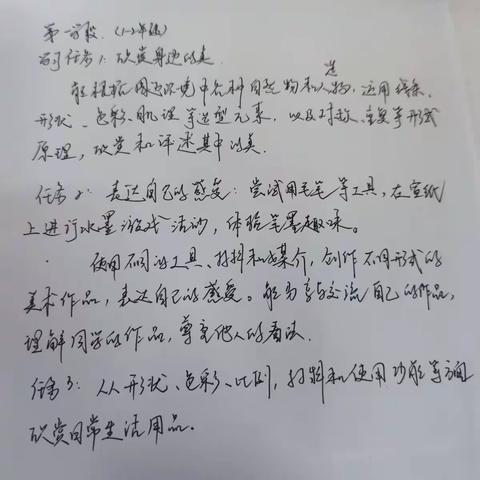 第一学段.（1-2年级）
学习任务1：欣赏身边的美
能根据周边环境中各种自然物和人造物，运用线条、
形状、色彩、肌理等造型元素，以及对称、重复等形式
原理，欣赏和评述其中的美.
任务2：表达自己的感受：尝试用毛笔等工具，在宣纸
上进行水墨游戏活动，体验笔墨趣味。
使用不同的工具、材料和媒介，创作不同形式的
美术作品，表达自己的感受。能分享与交流自己的作品，
理解同学的作品，尊重他人的看法.
任务3：从形状、色彩、比例，材料和使用功能等方面
欣赏日常生活用品.